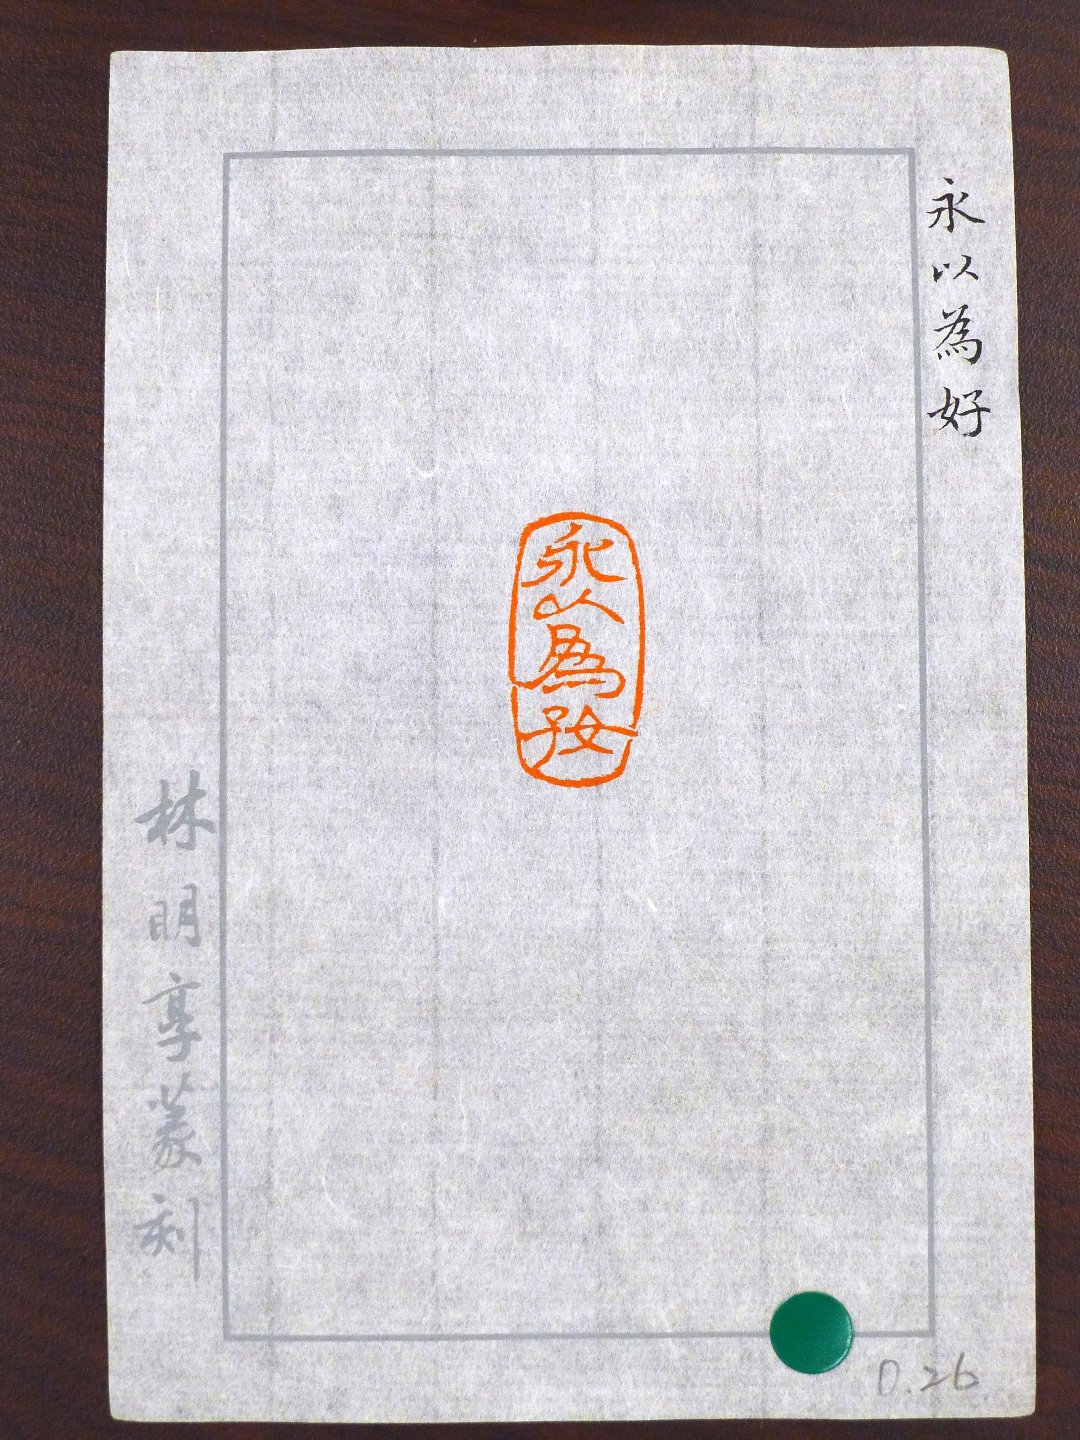 永以為好
永以為好
林明享篆刻
D.26